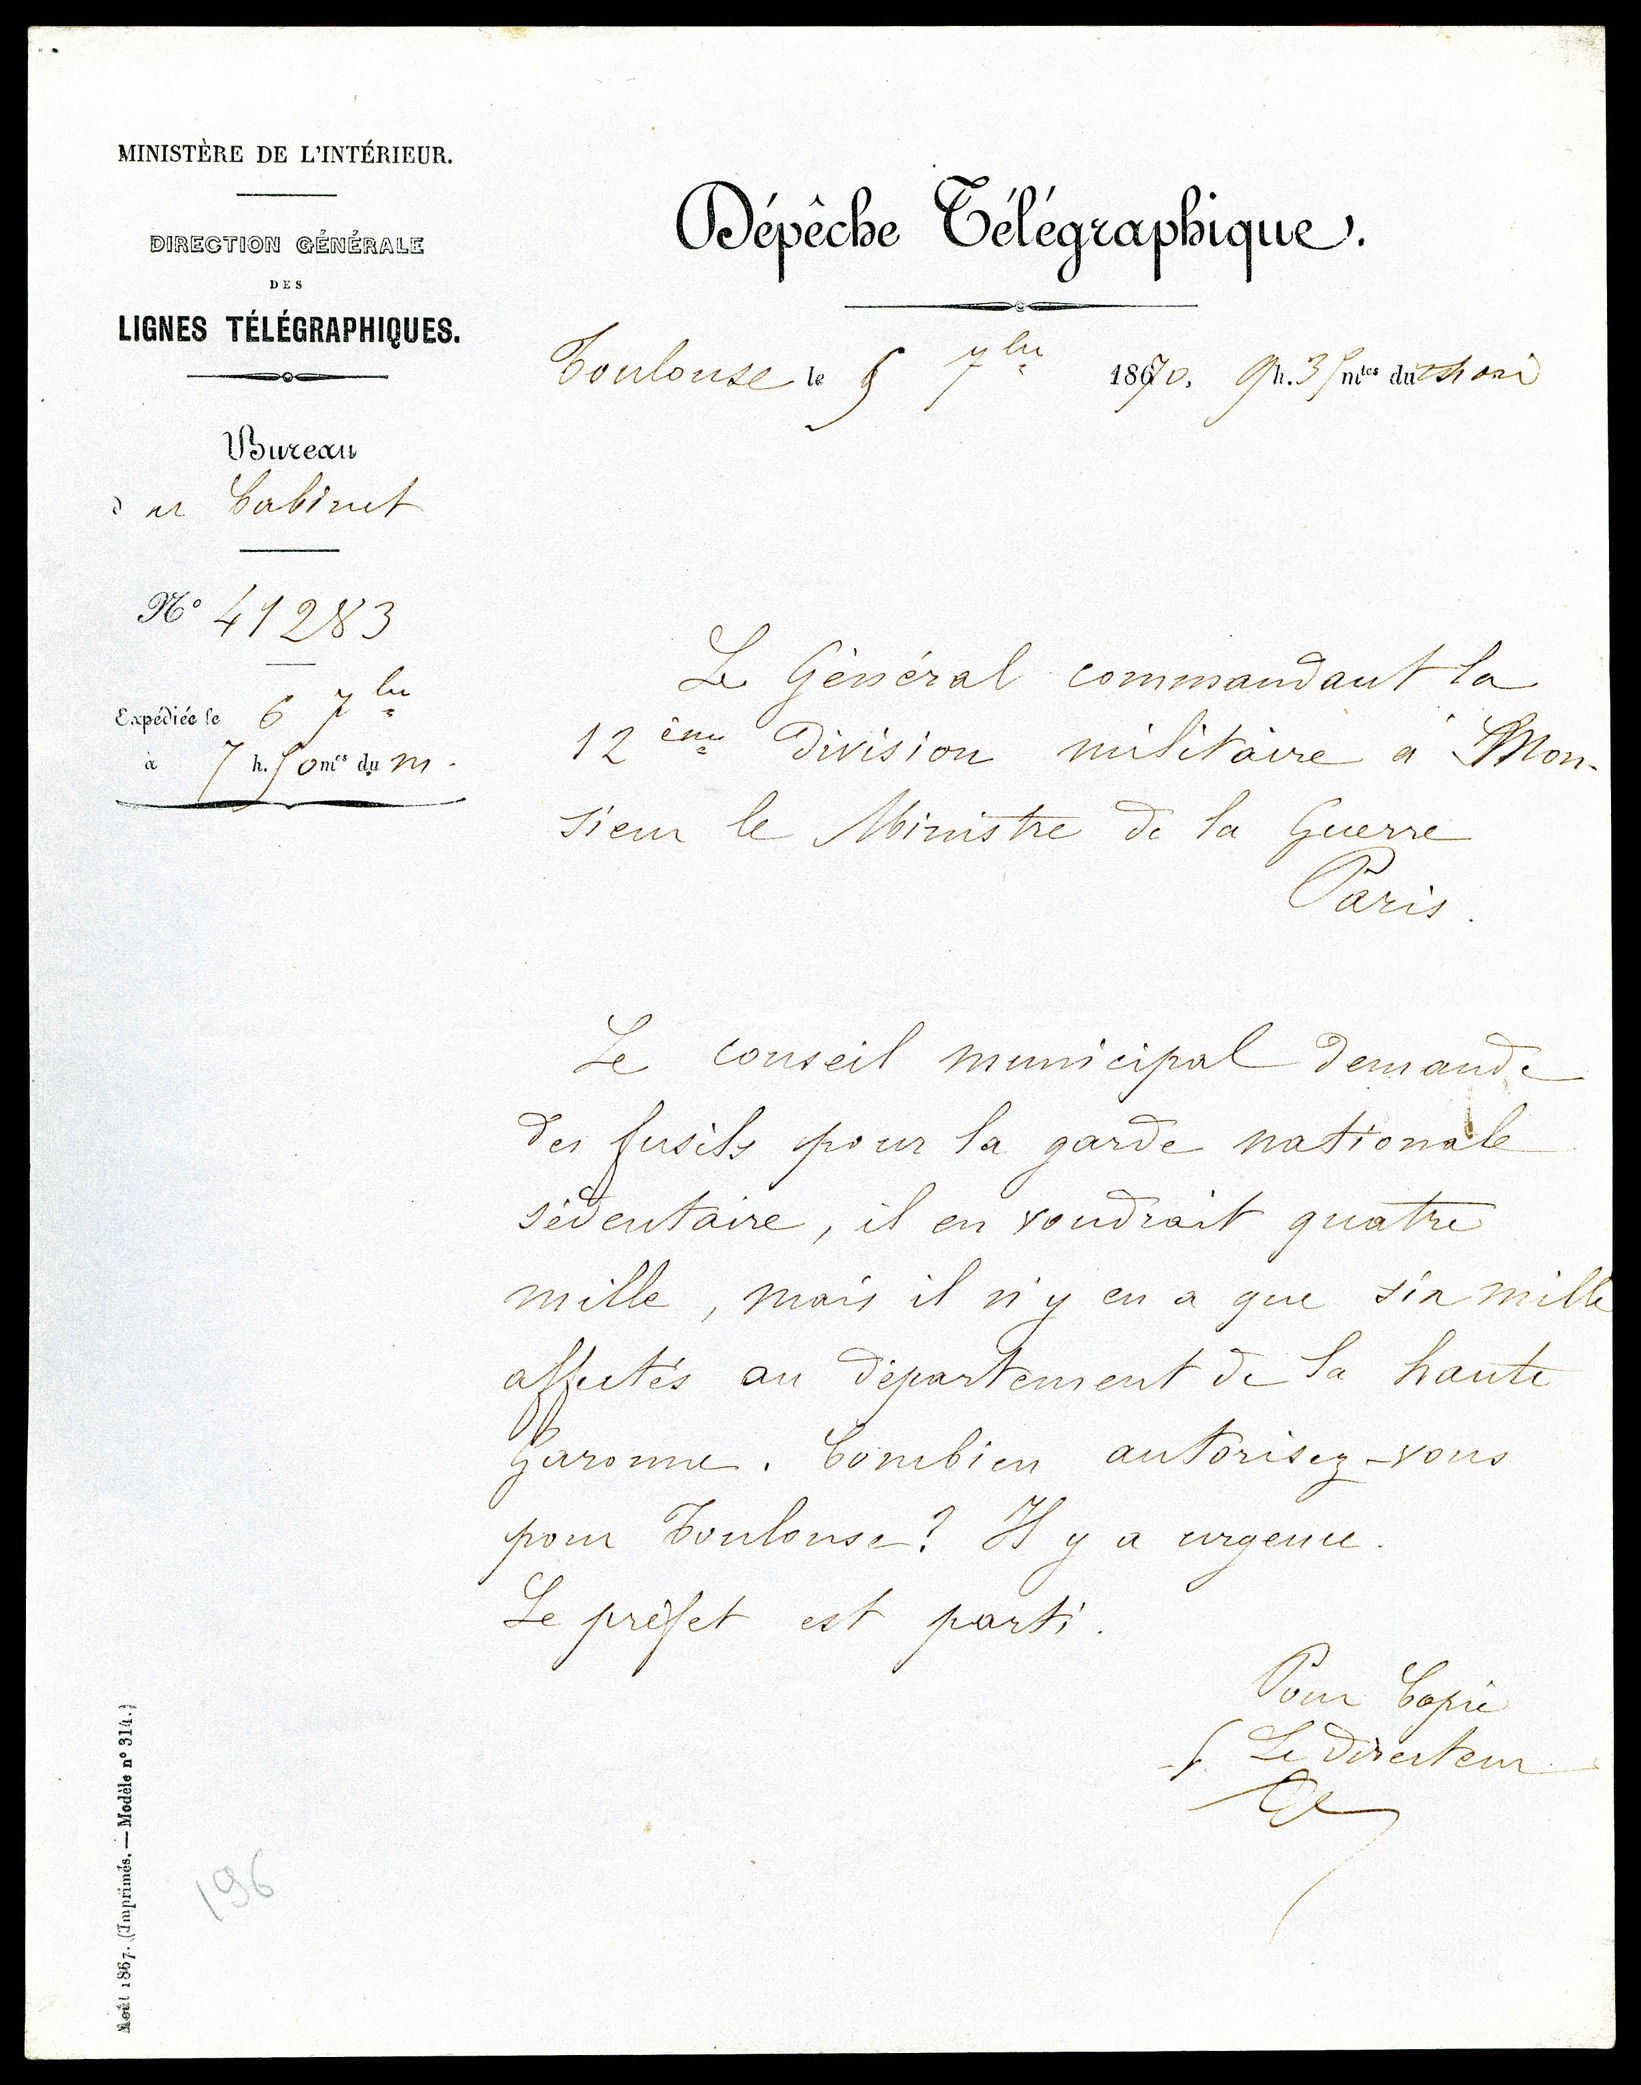 MINISTÈRE DE L'INTÉRIEUR.
DIRECTION GÉNÉRALE
DES
LIGNES TÉLÉGRAPHIQUES.
Bureau
du Cabinet
N° 41283
Expédiée le 6 7bre
à 7 h. 50 mes du m.
Dépêche Télégraphique.
Toulouse le 5 7bre 1870, 9 h. 35 mtes du soir
Le Général commandant la
12ème Division militaire à Mon-
sieur le Ministre de la Guerre
Paris.
Le conseil municipal demande
des fusils pour la garde nationale
sédentaire, il en voudrait quatre
mille, mais il n'y en a que six mille
affectés au département de la haute
Garonne. Combien autorisez-vous
pour Toulouse? Il y a urgence.
Le préfet est parti.
Pour Copie
Le Directeur
Août 1867. (Imprimés. — Modèle n° 314.)
196